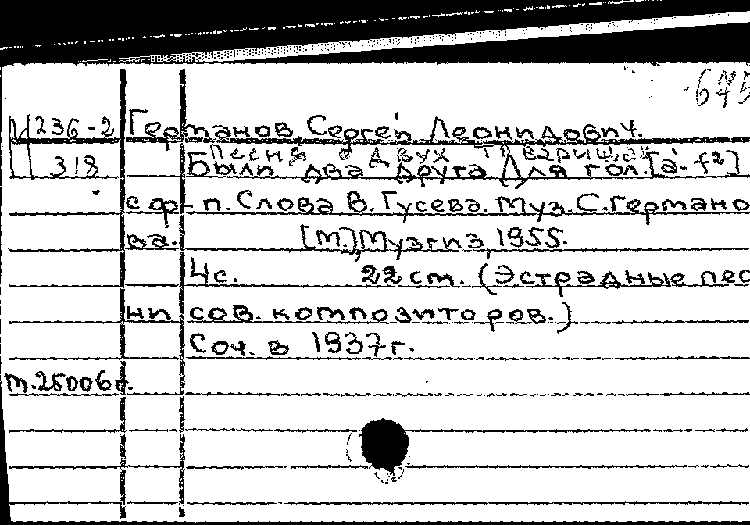 645
236-2 Германов, Сергей Леонидович.
Песня о двух товарищах
318 Были два друга. Для гол. [a-f²]
с ф-п. Слова В. Гусева. Муз. С. Германо
ва. [М.], Музгиз, 1955.
4с. 22 см. (Эстрадные пес
ни сов. композиторов.)
Соч. в 1937г.
т.25006б.